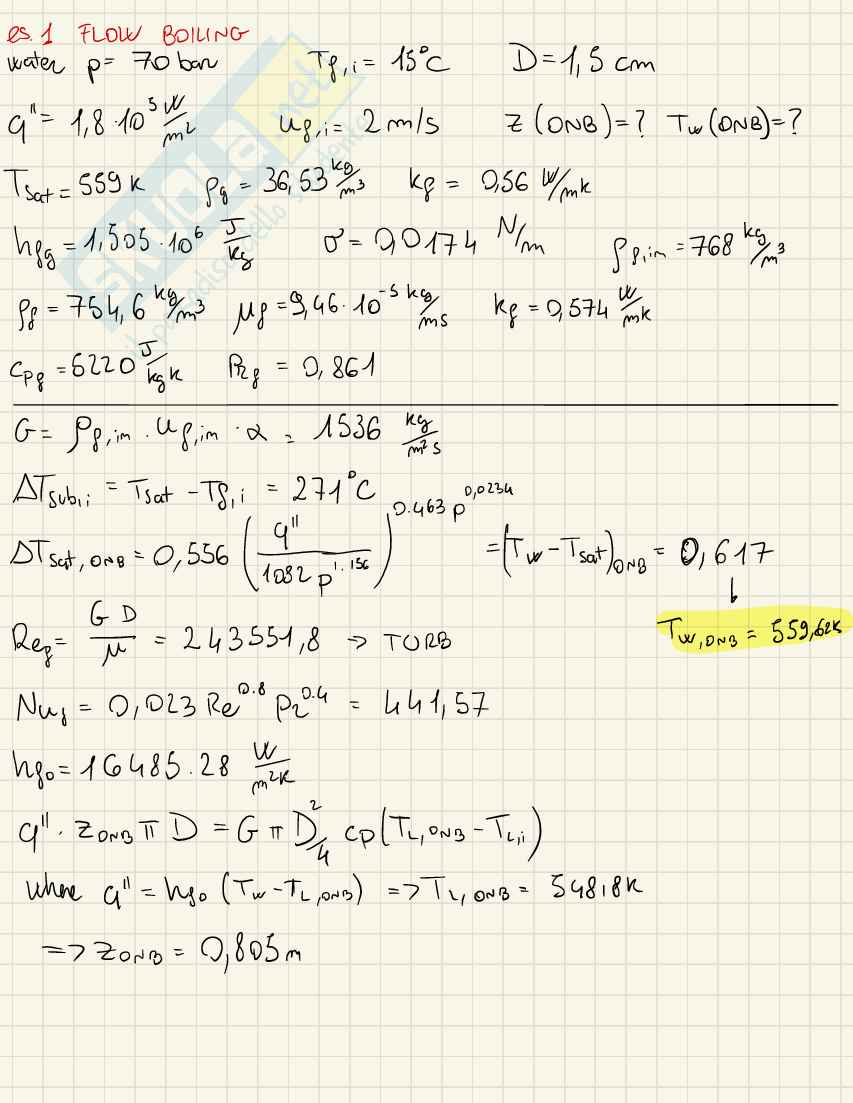 es.1 FLOW BOILING
water p= 70 bar T_f,i = 15°C D=1,5 cm
q'' = 1,8·10^5 W/m² u_f,i = 2 m/s z (ONB)=? T_w (ONB)=?
T_sat = 559 K ρ_g = 36,53 kg/m³ k_f = 0,56 W/mK
h_fg = 1,505·10^6 J/kg σ = 0,0174 N/m ρ_f,in = 768 kg/m³
ρ_f = 754,6 kg/m³ μ_f = 9,46·10^-5 kg/ms k_f = 0,574 W/mK
c_pf = 6220 J/kgK Pr_f = 0,861
G = ρ_f,in · u_f,in · α = 1536 kg/m²s
ΔT_sub,i = T_sat - T_f,i = 271°C
ΔT_sat,ONB = 0,556 (q''/1082 p^1.156)^0.463 p^0,0234 = (T_w - T_sat)_ONB = 0,617
↓
T_w,ONB = 559,62K
Re_f = G D/μ = 243551,8 → TURB
Nu_f = 0,023 Re^0.8 Pr^0.4 = 441,57
h_fo = 16485.28 W/m²K
q'' · z_ONB π D = G π D²/4 cp (T_L,ONB - T_L,i)
where q'' = h_fo (T_w - T_L,ONB) => T_L,ONB = 548,8K
=> z_ONB = 0,805m
SKUOLA.net
il paradiso dello studente